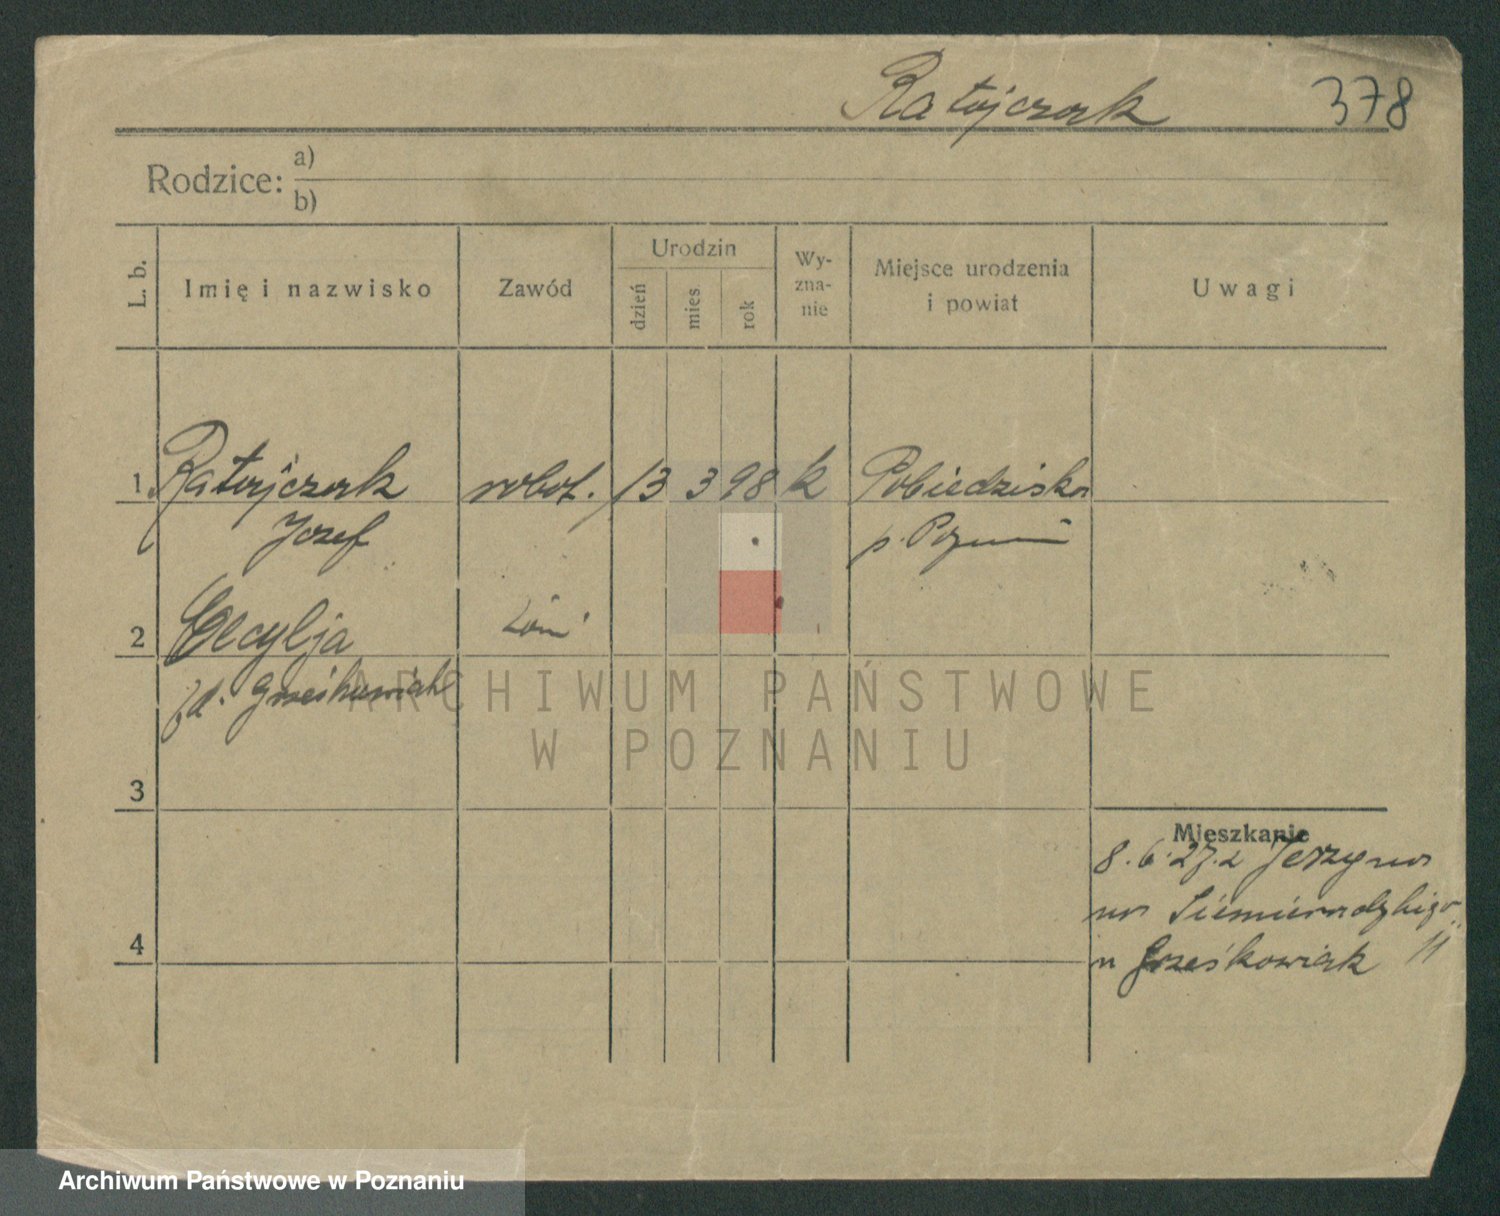 Ratajczak 378
Rodzice: a)
b)
L. b. Imię i nazwisko Zawód Urodzin dzień mies rok Wy-zna-nie Miejsce urodzenia i powiat Uwagi
1 Ratajczak robot. 13 3 98 k Pobiedziska
Józef p. Pozn
2 Cecylja
d. Grześkowiak
3
Mieszkanie
8. 6. 27. z Jerzyna
na Siemiradzkiego 11
4 u Grześkowiak
ARCHIWUM PAŃSTWOWE
W POZNANIU
Archiwum Państwowe w Poznaniu